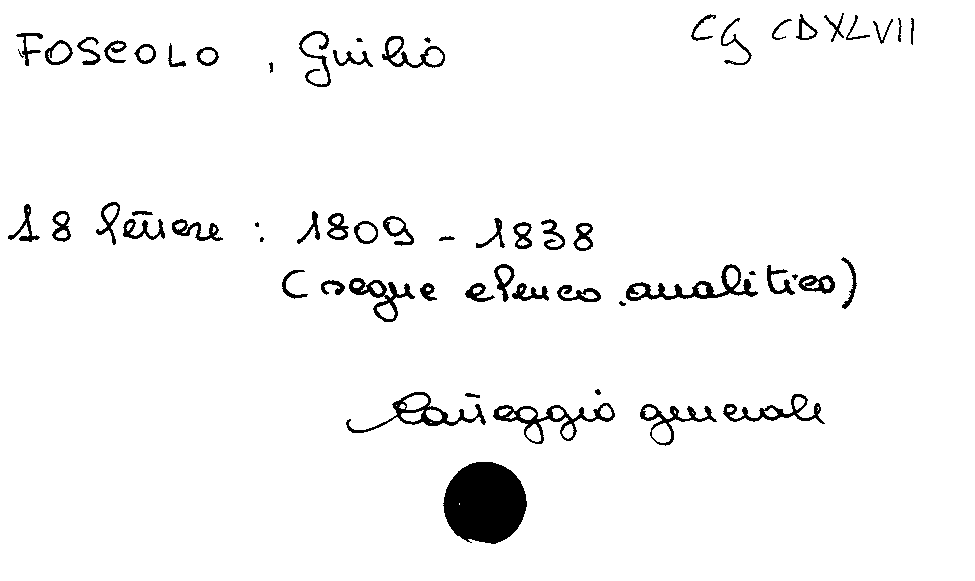 FOSCOLO, Giulio
CG CDXLVII
18 lettere : 1809 - 1838
(segue elenco analitico)
Carteggio generale